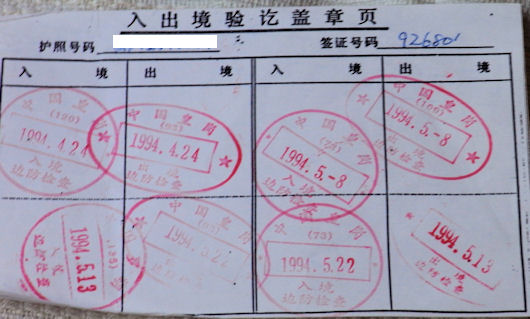 入出境验讫盖章页
护照号码 签证号码 926801
入 境 出 境 入 境 出 境
中国皇岗
(120)
1994.4.24
入境
边防检查
中国皇岗
1994.4.24
出境
边防检查
中国皇岗
1994.5.-8
入境
边防检查
中国皇岗
(100)
1994.5.-8
出境
边防检查
1994.5.13
入境
边防检查
中国皇岗
1994.5.22
边防检查
中国皇岗
(73)
1994.5.22
入境
边防检查
1994.5.13
出境
边防检查